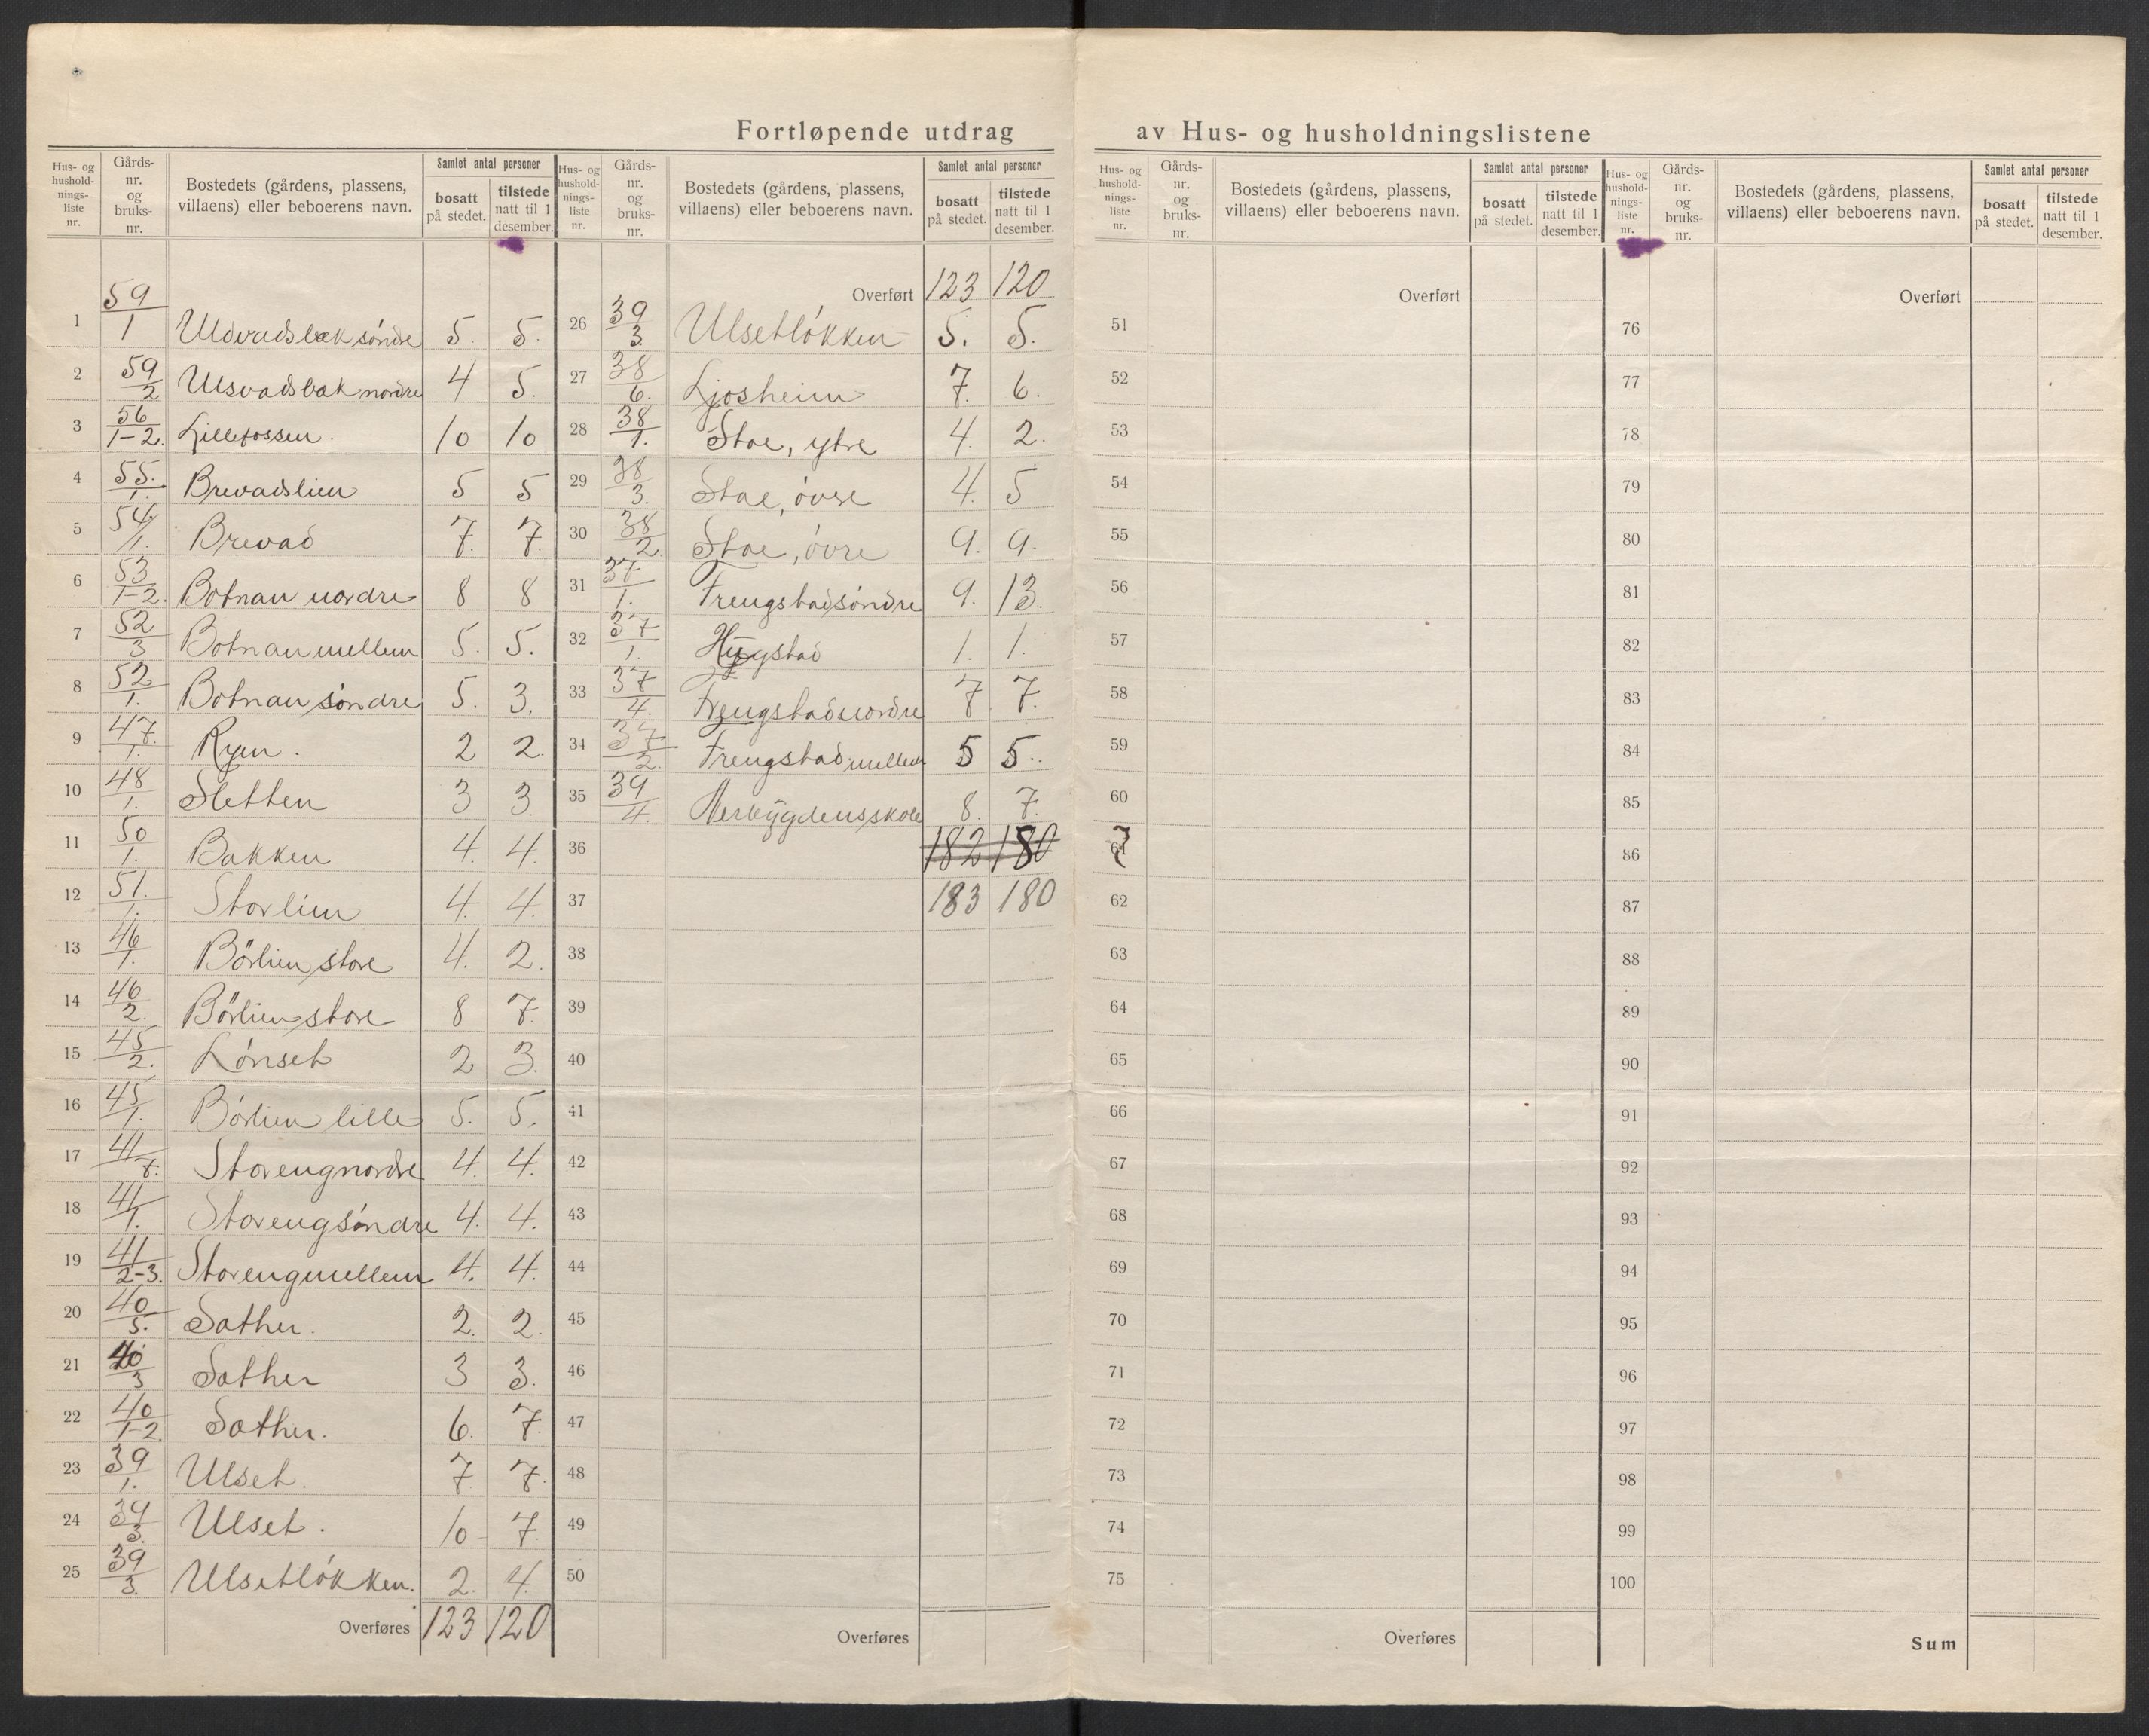 Fortløpende utdrag av Hus- og husholdningslistene
Hus- og hushold- nings- liste nr. | Gårds- nr. og bruks- nr. | Bostedets (gårdens, plassens, villaens) eller beboerens navn. | Samlet antal personer | bosatt på stedet. | tilstede natt til 1 desember.
1 | 59/1 | søndre | 5. | 5.
2 | 59/2 | nordre | 4 | 5.
3 | 56/1-2. | Lillefossen. | 10 | 10
4 | 55./1. | Brevadslien | 5 | 5
5 | 54/1. | Brevad | 7. | 7.
6 | 53/1-2. | Botnan nordre | 8 | 8
7 | 52/3 | Botnan mellem | 5. | 5.
8 | 52/1. | Botnan søndre | 5. | 3.
9 | 47./1. | Ryen. | 2 | 2.
10 | 48/1. | Sletten | 3 | 3
11 | 50/1. | Bakken | 4. | 4.
12 | 51./1. | Storlien | 4. | 4.
13 | 46/1. | Börlien store | 4. | 2.
14 | 46/2. | Börlien store | 8 | 7.
15 | 45/2. | Lónset | 2 | 3.
16 | 45/1. | Bórlien lille | 5. | 5.
17 | 41/7. | Storeng nordre | 4. | 4.
18 | 41/1. | Storeng sóndre | 4. | 4.
19 | 41/2-3. | Storeng mellem | 4. | 4.
20 | 40/5. | Sæther. | 2. | 2.
21 | 40/3 | Sæther | 3 | 3.
22 | 40/1-2. | Sæther. | 6. | 7.
23 | 39/1. | Ulset. | 7 | 7.
24 | 39/3. | Ulset. | 10 | 7.
25 | 39/3. | Ulsetlókken. | 2. | 4.
Overføres 123 120
Hus- og hushold- nings- liste nr. | Gårds- nr. og bruks- nr. | Bostedets (gårdens, plassens, villaens) eller beboerens navn. | Samlet antal personer | bosatt på stedet. | tilstede natt til 1 desember.
Overført 123 120
26 | 39/3. | Ulsetlókken | 5. | 5.
27 | 38/6. | Ljosheim | 7. | 6.
28 | 38/1. | Stae, ytre | 4. | 2.
29 | 38/3. | Stae, óvre | 4. | 5
30 | 38/2. | Stae, óvre | 9. | 9.
31 | 37/1. | Frengstad sóndre | 9. | 13.
32 | 37/1. | 1. | 1.
33 | 37/4. | Frengstad nordre | 7 | 7.
34 | 37/2. | Frengstad mellem | 5 | 5.
35 | 39/4. | Nerbygdens skole | 8. | 7.
36 182 180
37 183 180
38
39
40
41
42
43
44
45
46
47
48
49
50
Overføres
Hus- og hushold- nings- liste nr. | Gårds- nr. og bruks- nr. | Bostedets (gårdens, plassens, villaens) eller beboerens navn. | Samlet antal personer | bosatt på stedet. | tilstede natt til 1 desember.
Overført
51
52
53
54
55
56
57
58
59
60
61
62
63
64
65
66
67
68
69
70
71
72
73
74
75
Overføres
Hus- og hushold- nings- liste nr. | Gårds- nr. og bruks- nr. | Bostedets (gårdens, plassens, villaens) eller beboerens navn. | Samlet antal personer | bosatt på stedet. | tilstede natt til 1 desember.
Overført
76
77
78
79
80
81
82
83
84
85
86
87
88
89
90
91
92
93
94
95
96
97
98
99
100
Sum